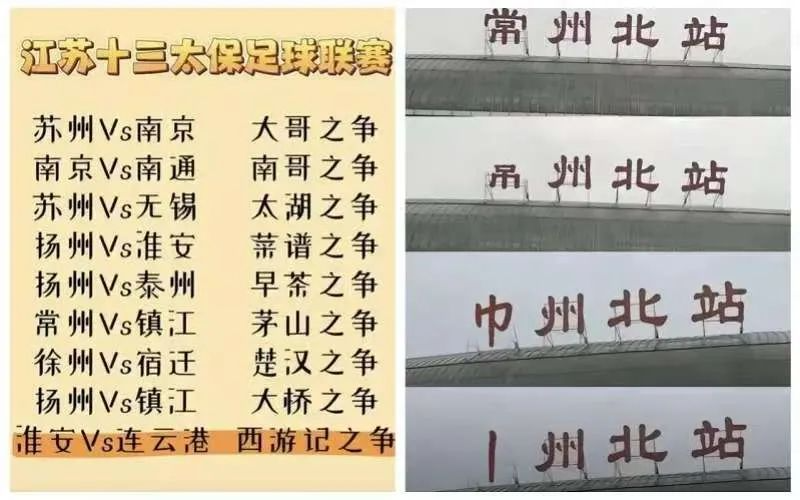 江苏十三太保足球联赛
苏州Vs南京 大哥之争
南京Vs南通 南哥之争
苏州Vs无锡 太湖之争
扬州Vs淮安 菜谱之争
扬州Vs泰州 早茶之争
常州Vs镇江 茅山之争
徐州Vs宿迁 楚汉之争
扬州Vs镇江 大桥之争
淮安Vs连云港 西游记之争
常州北站
吊州北站
巾州北站
丨州北站